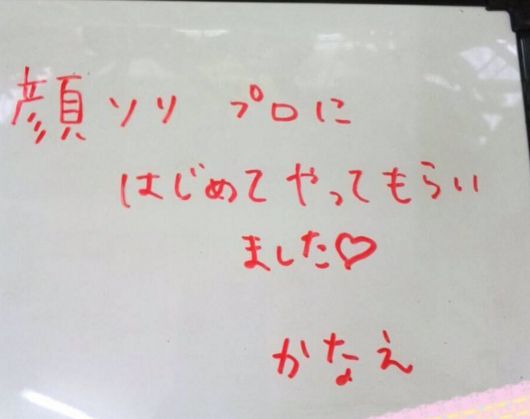 顔ソリ プロに
はじめてやってもらい
ました♡
かなえ